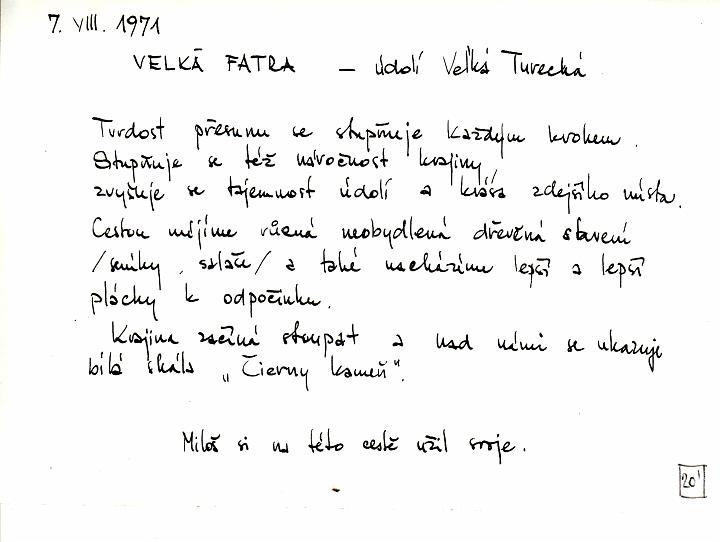 7. VIII. 1971
VELKÁ FATRA – údolí Veľká Turecká
Tvrdost přesunu se stupňuje každým krokem.
Stupňuje se též náročnost krajiny,
zvyšuje se tajemnost údolí a krása zdejšího místa.
Cestou míjíme různá neobydlená dřevěná stavení
/seníky, salaše/ a také nacházíme lepší a lepší
plácky k odpočinku.
Krajina začíná stoupat a nad námi se ukazuje
bílá skála „Čierny kameň“.
Miloš si na této cestě užil svoje.
20'